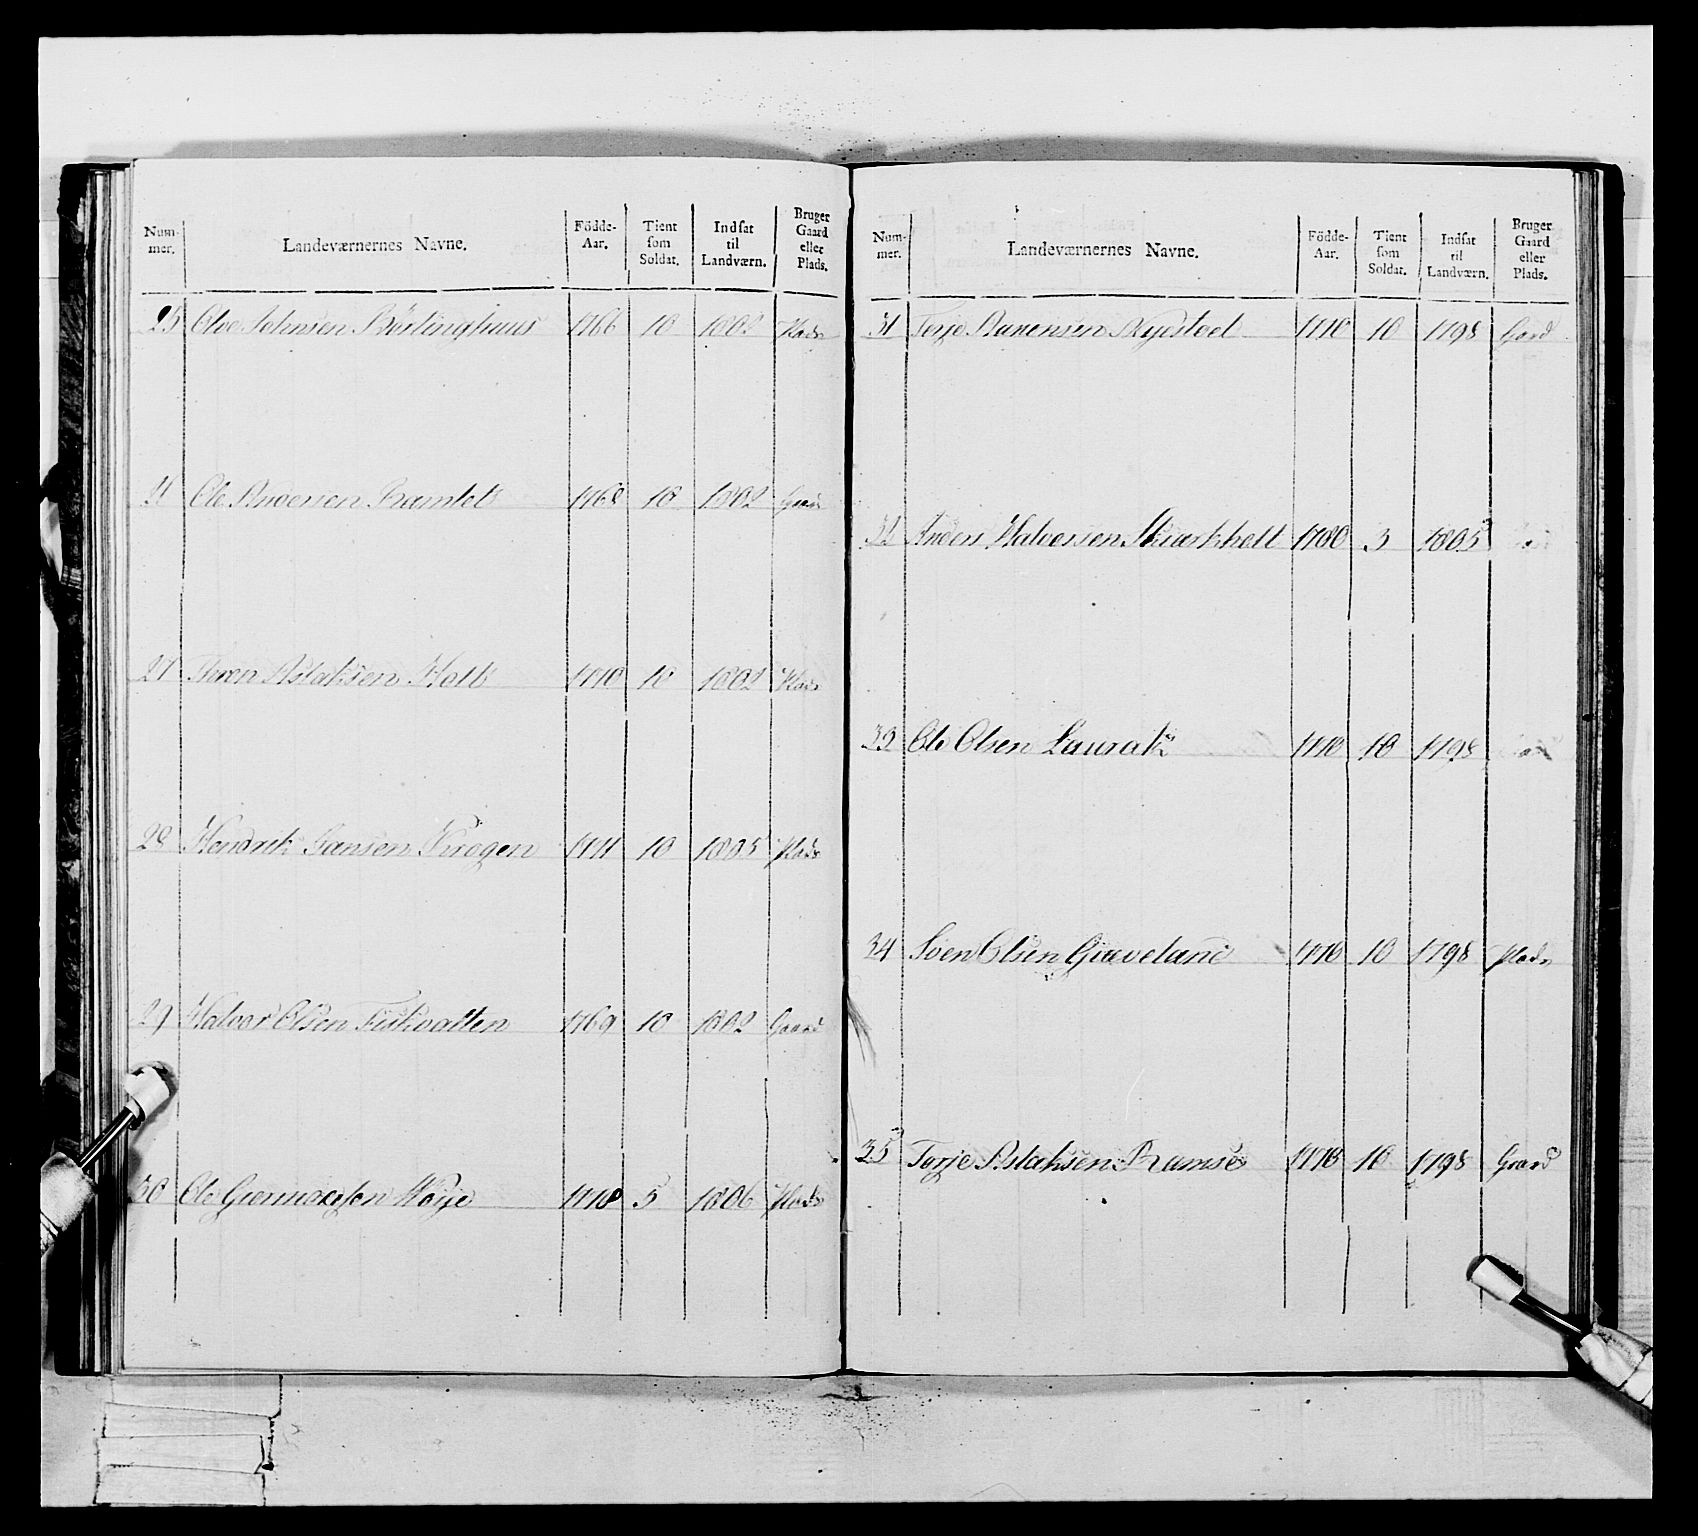 Num-mer. Landeværnernes Navne. Födde-Aar. Tient som Soldat. Indsat til Landværn. Bruger Gaard eller Plads.
25 Olve Johnsen 1766 10 1802 Plads
26 Ole Andersen Ramtet 1768 10 1802 Gaard
27 Aslaksen Holt 1770 10 1802 Plads
28 Hendrik Jansen Krogen 1771 10 1805 Plads
29 Halvor Olsen Fiskvatten 1769 10 1802 Gaard
30 Ole 1778 5 1806 Plads
Num-mer. Landeværnernes Navne. Födde-Aar. Tient som Soldat. Indsat til Landværn. Bruger Gaard eller Plads.
31 Terje 1770 10 1798 Gard
32 Anders Halvorsen 1780 3 1805
33 Ole Olsen Laurak 1770 10 1798
34 Sven Olsen Graveland 1770 10 1798 Plads
35 Terje Aslaksen Ramse 1770 10 1798 Graard